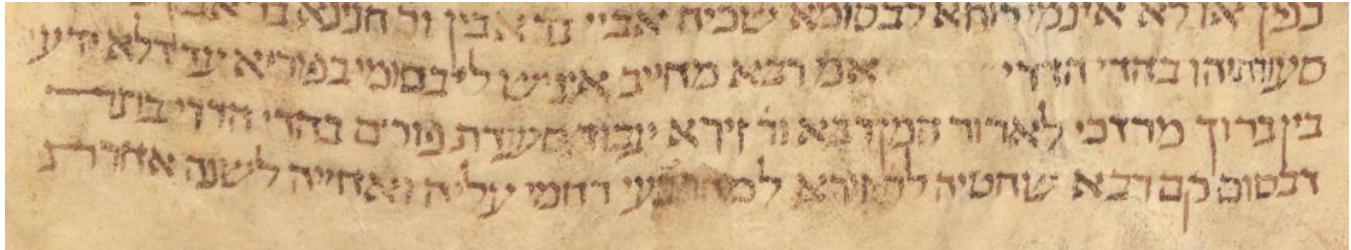 כפן או לא אינמי רווחא לבסומא שכיח אביי בר אבין ור חנינא בר אבין
סעודתיהו בהדי הדדי אמ רבא מחייב איניש לבסומי בפוריא עד דלא ידע
בין ברוך מרדכי לארור המן רבא ור זירא עבוד סעודת פורים בהדי הדדי בתר
דבסום קם רבא שחטיה לר זירא למחר בעי רחמי עליה ואחייה לשנה אחרת